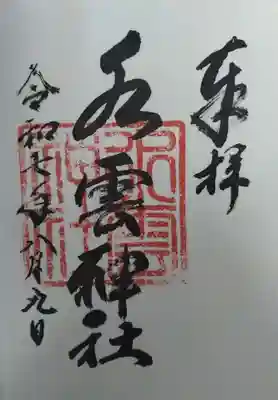 奉拝
水雲神社
令和七年八月九日